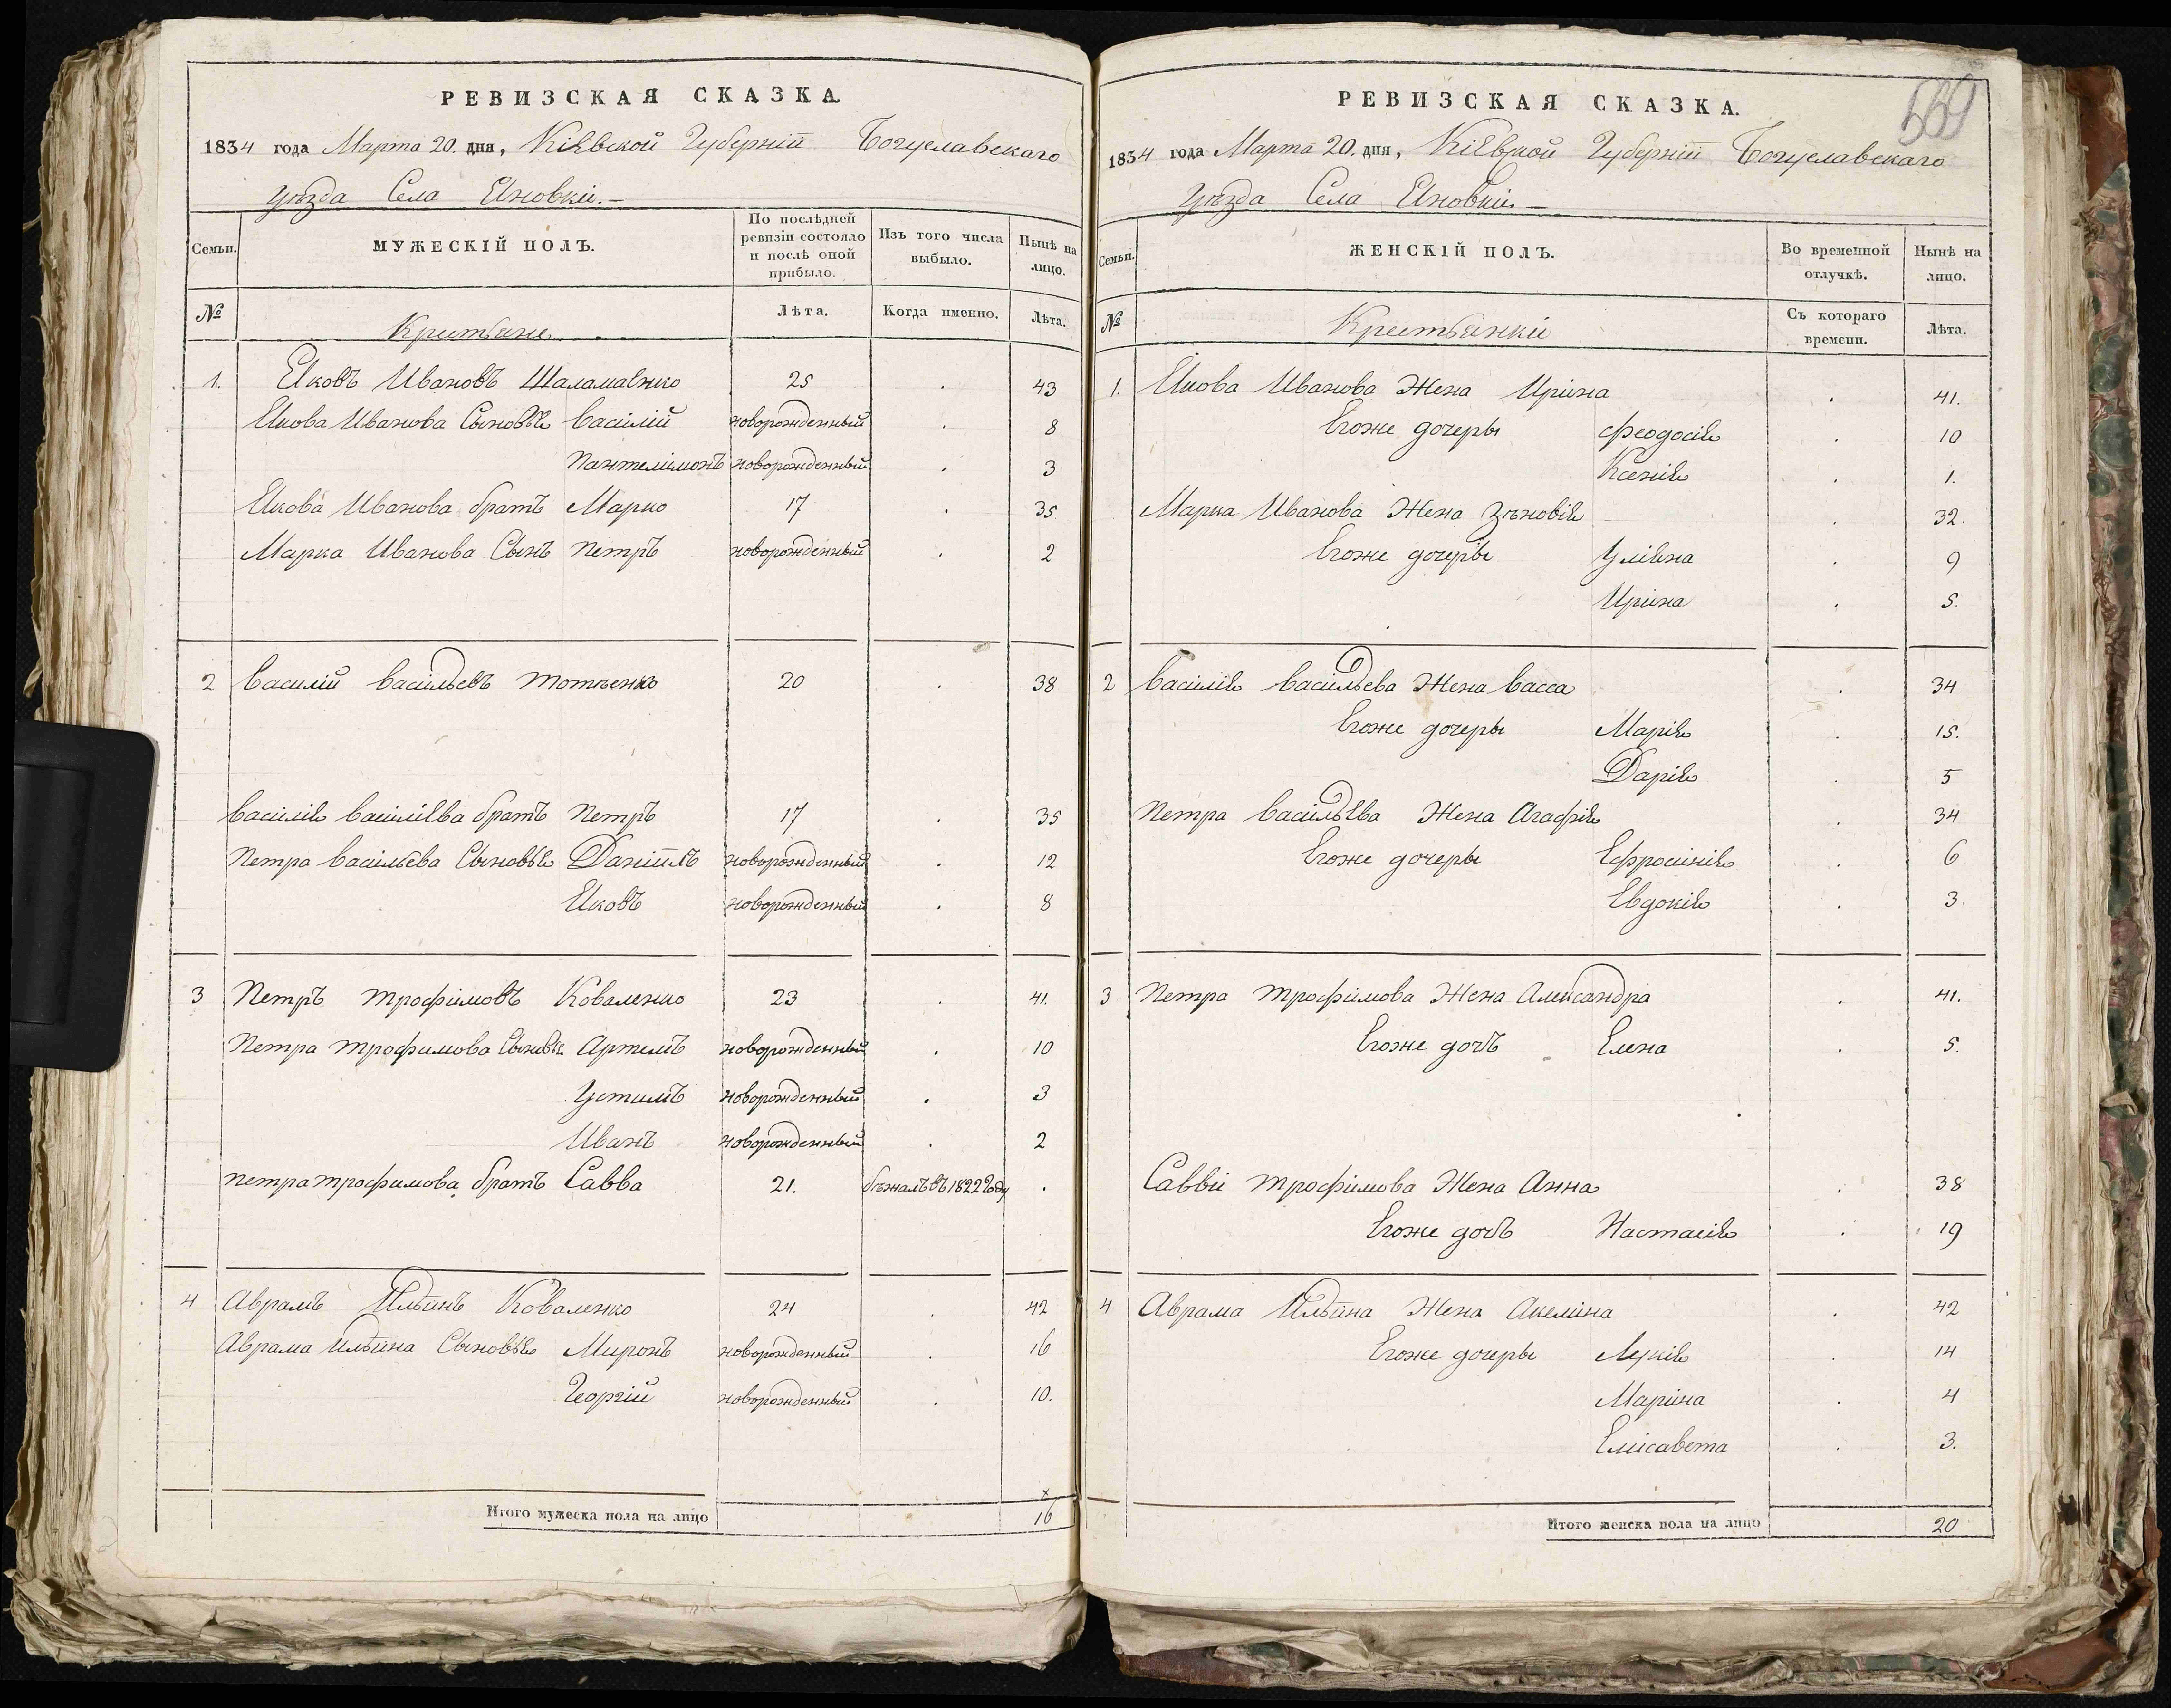 РЕВИЗСКАЯ СКАЗКА
1834 года Марта 20. дня, Кіевской Губерніи Богуславскаго
уѣзда Села Яновки.
Семьи.
МУЖЕСКІЙ ПОЛЪ.
По послѣдней ревизіи состояло и послѣ оной прибыло.
Изъ того числа выбыло.
Нынѣ на лицо.
№
Крестьяне
Лѣта.
Когда именно.
Лѣта.
1. Яковъ Ивановъ Шаламаенко 25 . 43
Якова Иванова Сыновья Василій новорожденный . 8
Пантелимонъ новорожденный . 3
Якова Иванова братъ Марко 17 . 35
Марка Иванова Сынъ Петръ новорожденный . 2
2 Василій Васильевъ 20 . 38
Василія Василіева братъ Петръ 17 . 35
Петра Васильева Сыновья Даніилъ новорожденный . 12
Яковъ новорожденный . 8
3 Петръ Трофимовъ Коваленко 23 . 41.
Петра Трофимова Сыновья Артемъ новорожденный . 10
Устимъ новорожденный . 3
Иванъ новорожденный . 2
Петра Трофимова братъ Савва 21. бѣжалъ въ 1822 году .
4 Аврамъ Ильинъ Коваленко 24 . 42
Аврама Ильина Сыновья Миронъ новорожденный . 16
Георгій новорожденный . 10.
Итого мужеска пола на лицо 16
РЕВИЗСКАЯ СКАЗКА.
1834 года Марта 20. дня, Кіевской Губерніи Богуславскаго
уѣзда Села Яновки.
Семьи.
ЖЕНСКІЙ ПОЛЪ.
Во временной отлучкѣ.
Нынѣ на лицо.
№
Крестьянки
Съ котораго времени.
Лѣта.
1. Якова Иванова Жена Ирина . 41.
Егоже дочеры Феодосія . 10
Ксенія . 1.
Марка Иванова Жена Зѣновія . 32.
Егоже дочеры Уліяна . 9
Ирина . 5.
2 Василія Васильева Жена Васса . 34
Егоже дочеры Марія . 15.
Дарія . 5
Петра Васильева Жена Агафія . 34
Егоже дочеры Ефросинія . 6
Евдокія . 3.
3 Петра Трофимова Жена Александра . 41.
Егоже дочь Елена . 5.
Саввы Трофимова Жена Анна . 38
Егоже дочь Настасія . 19
4 Аврама Ильина Жена Акелина . 42
Егоже дочеры Лукія . 14
Марина . 4
Елисавета . 3.
Итого женска пола на лицо 20